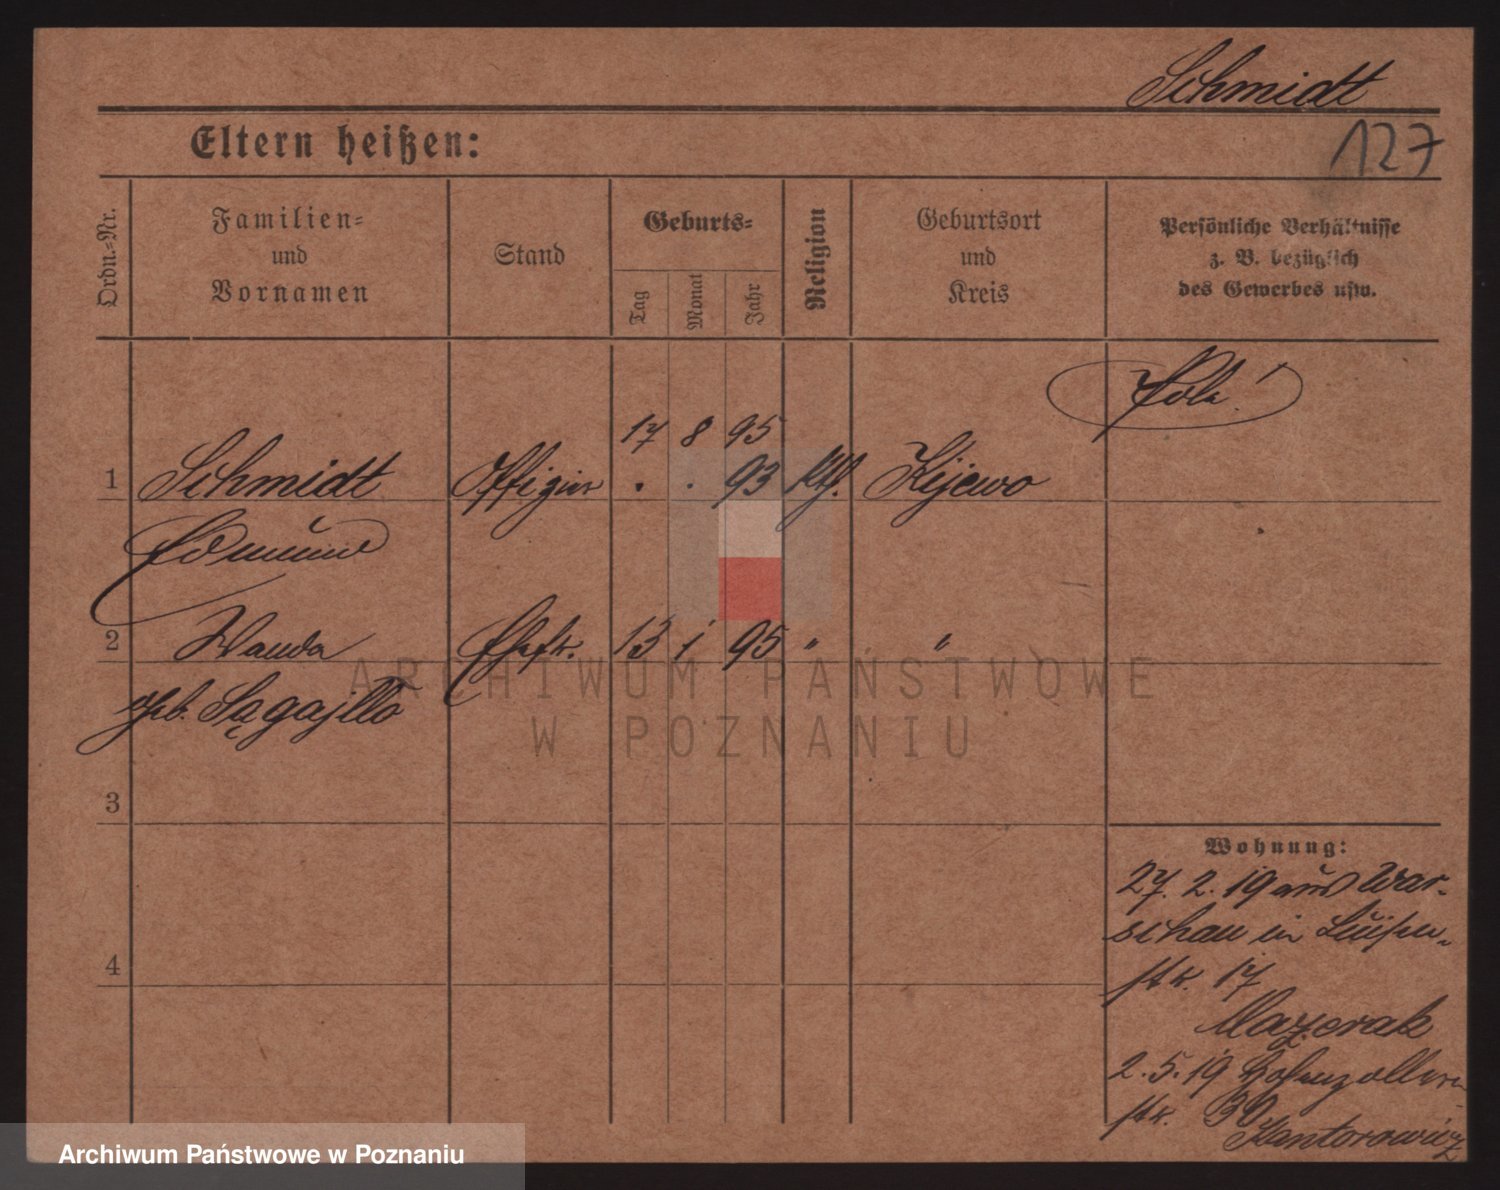 Schmidt
Eltern heißen:
127
Ordn.=Nr.
Familien=
und
Vornamen
Stand
Geburts=
Tag
Monat
Jahr
Religion
Geburtsort
und
Kreis
Persönliche Verhältnisse
z. B. bezüglich
des Gewerbes usw.
Pole!
17 8 95
1 Schmidt Offizier . . 93 kth. Kijewo
Edmund
2 Wanda Ehefr. 13 1 95 " "
geb. Sągajllo
3
4
Wohnung:
27. 2. 19 aus War-
schau in Luisen-
str. 17
Mazerak
2. 5. 19 Hohenzollern
str. 30
Kantorowicz
ARCHIWUM PAŃSTWOWE
W POZNANIU
Archiwum Państwowe w Poznaniu